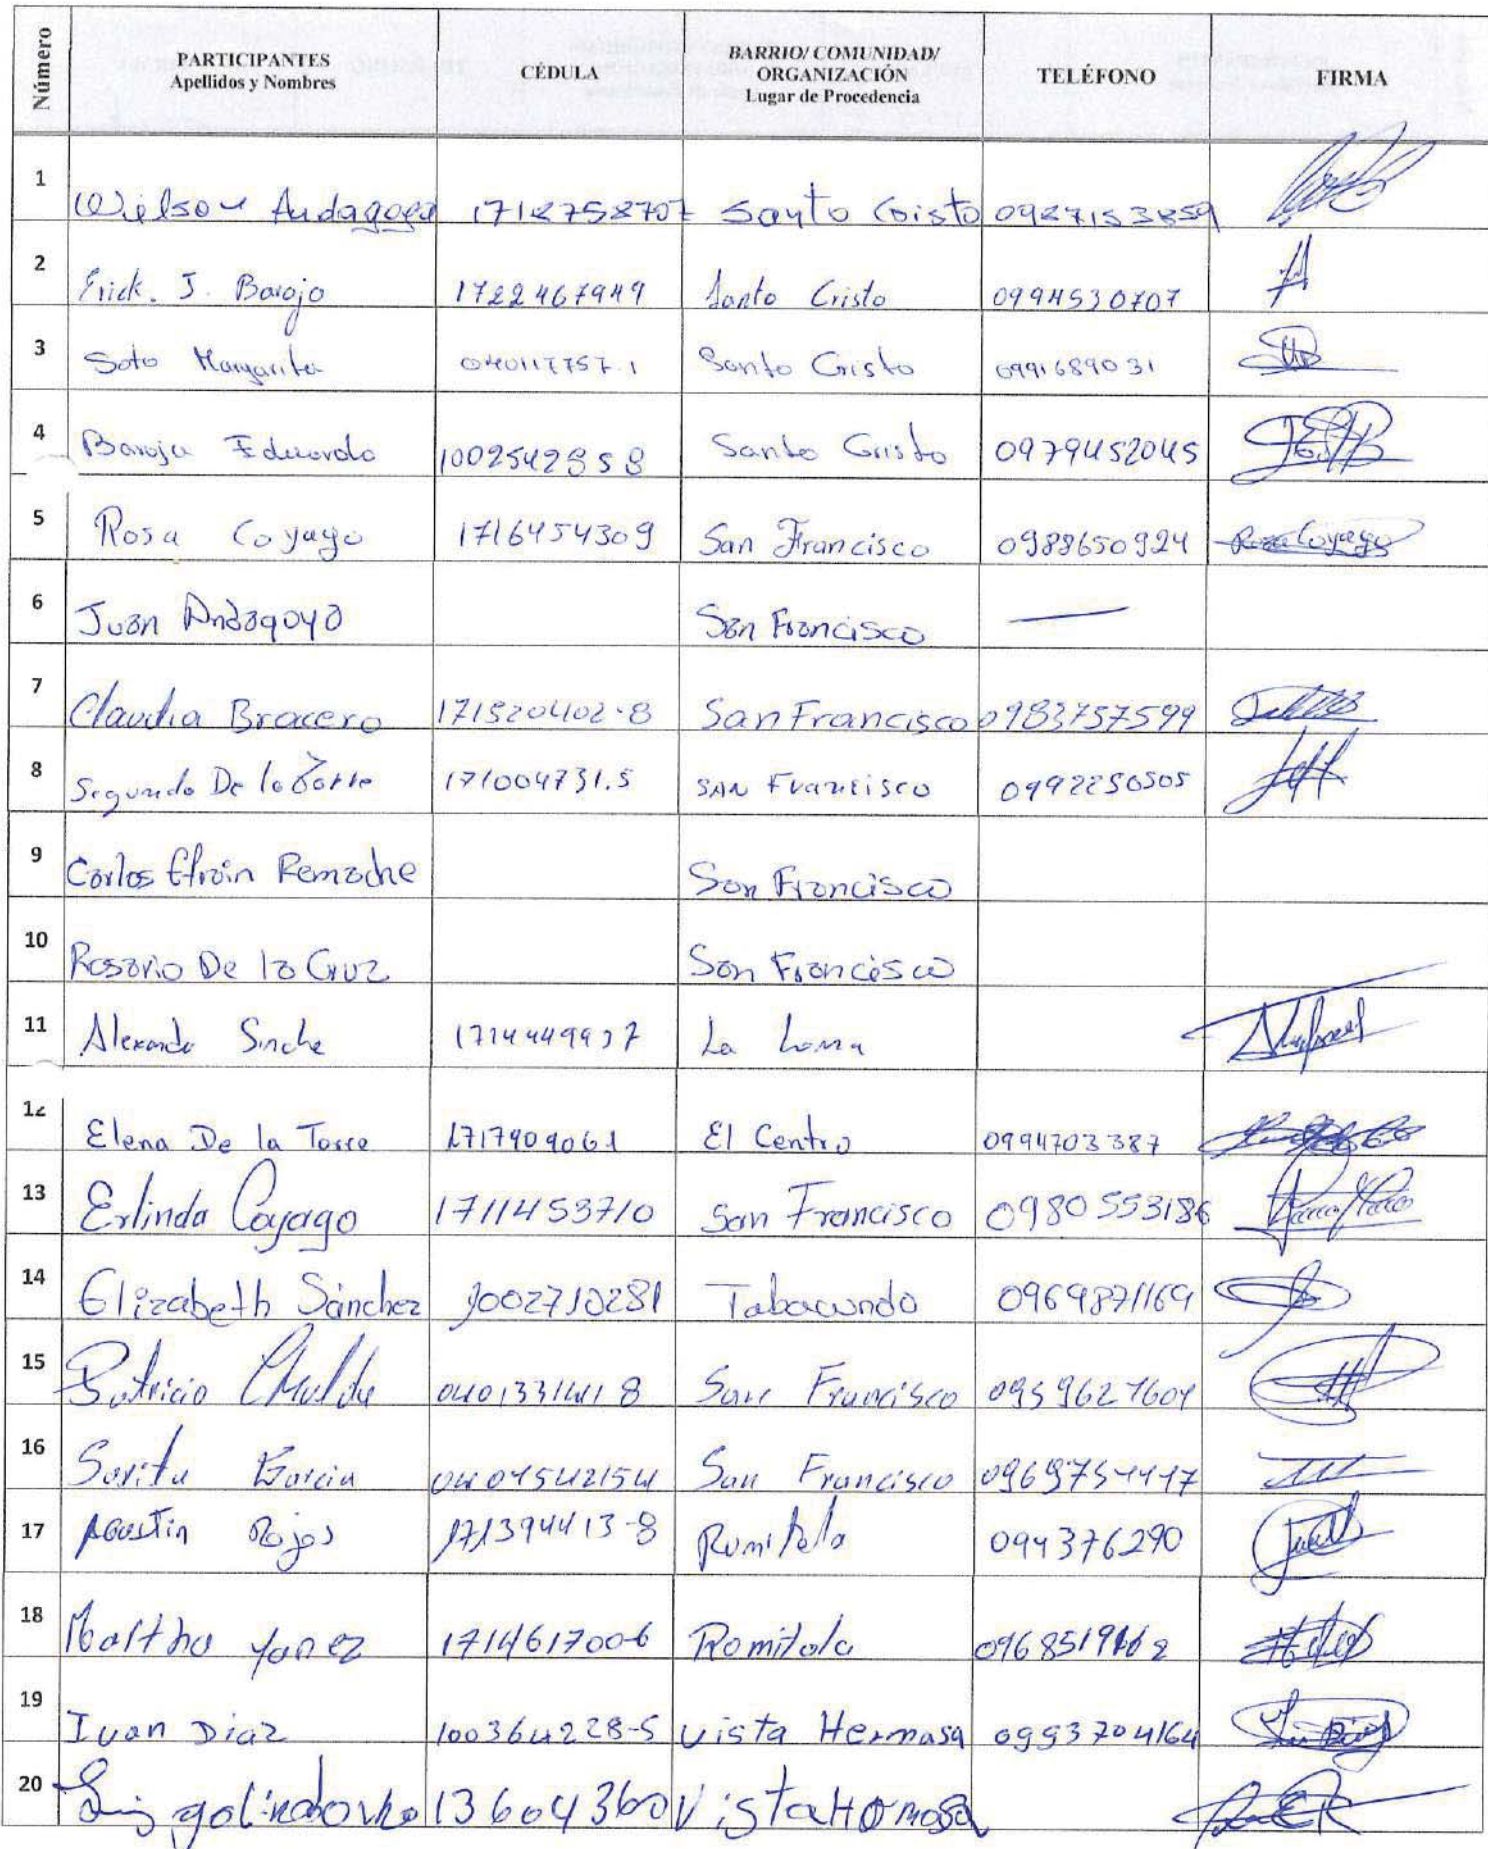 Número
PARTICIPANTES
Apellidos y Nombres
CÉDULA
BARRIO/ COMUNIDAD/
ORGANIZACIÓN
Lugar de Procedencia
TELÉFONO
FIRMA
1 Wilson Andagoya 1718758707 Santo Cristo 0987153859
2 Erick. J. Baroja 1722467949 Santo Cristo 0994530707
3 Soto Margarita 040117757.1 Santo Cristo 0991689031
4 Baroja Eduardo 1002542858 Santo Cristo 0979452045
5 Rosa Coyago 1716454309 San Francisco 0988650924 Rosa Coyago
6 Juan Andagoya San Francisco —
7 Claudia Bracero 171520402-8 San Francisco 0983757599
8 Segundo De la Torre 171004731.5 SAN Francisco 0992250505
9 Carlos Efrain Remache San Francisco
10 Rosario De la Cruz San Francisco
11 Alexandra Sinche 1714449937 La Loma
12 Elena De la Torre 1717909061 El Centro 0994703387
13 Erlinda Coyago 1711453710 San Francisco 0980553186
14 Elizabeth Sánchez 1002710281 Tabacundo 0969871169
15 Patricio 0401331418 San Francisco 0959627604
16 Sarita Garcia 0401542154 San Francisco
17 Agustin Rojas 171394413-8 Rumitola 094376290
18 Martha Yanez 171461700-6 Romitola
19 Ivan Diaz 100364228-5 Vista Hermasa 0993704164
20 Luis 13604360 Vista Hermosa